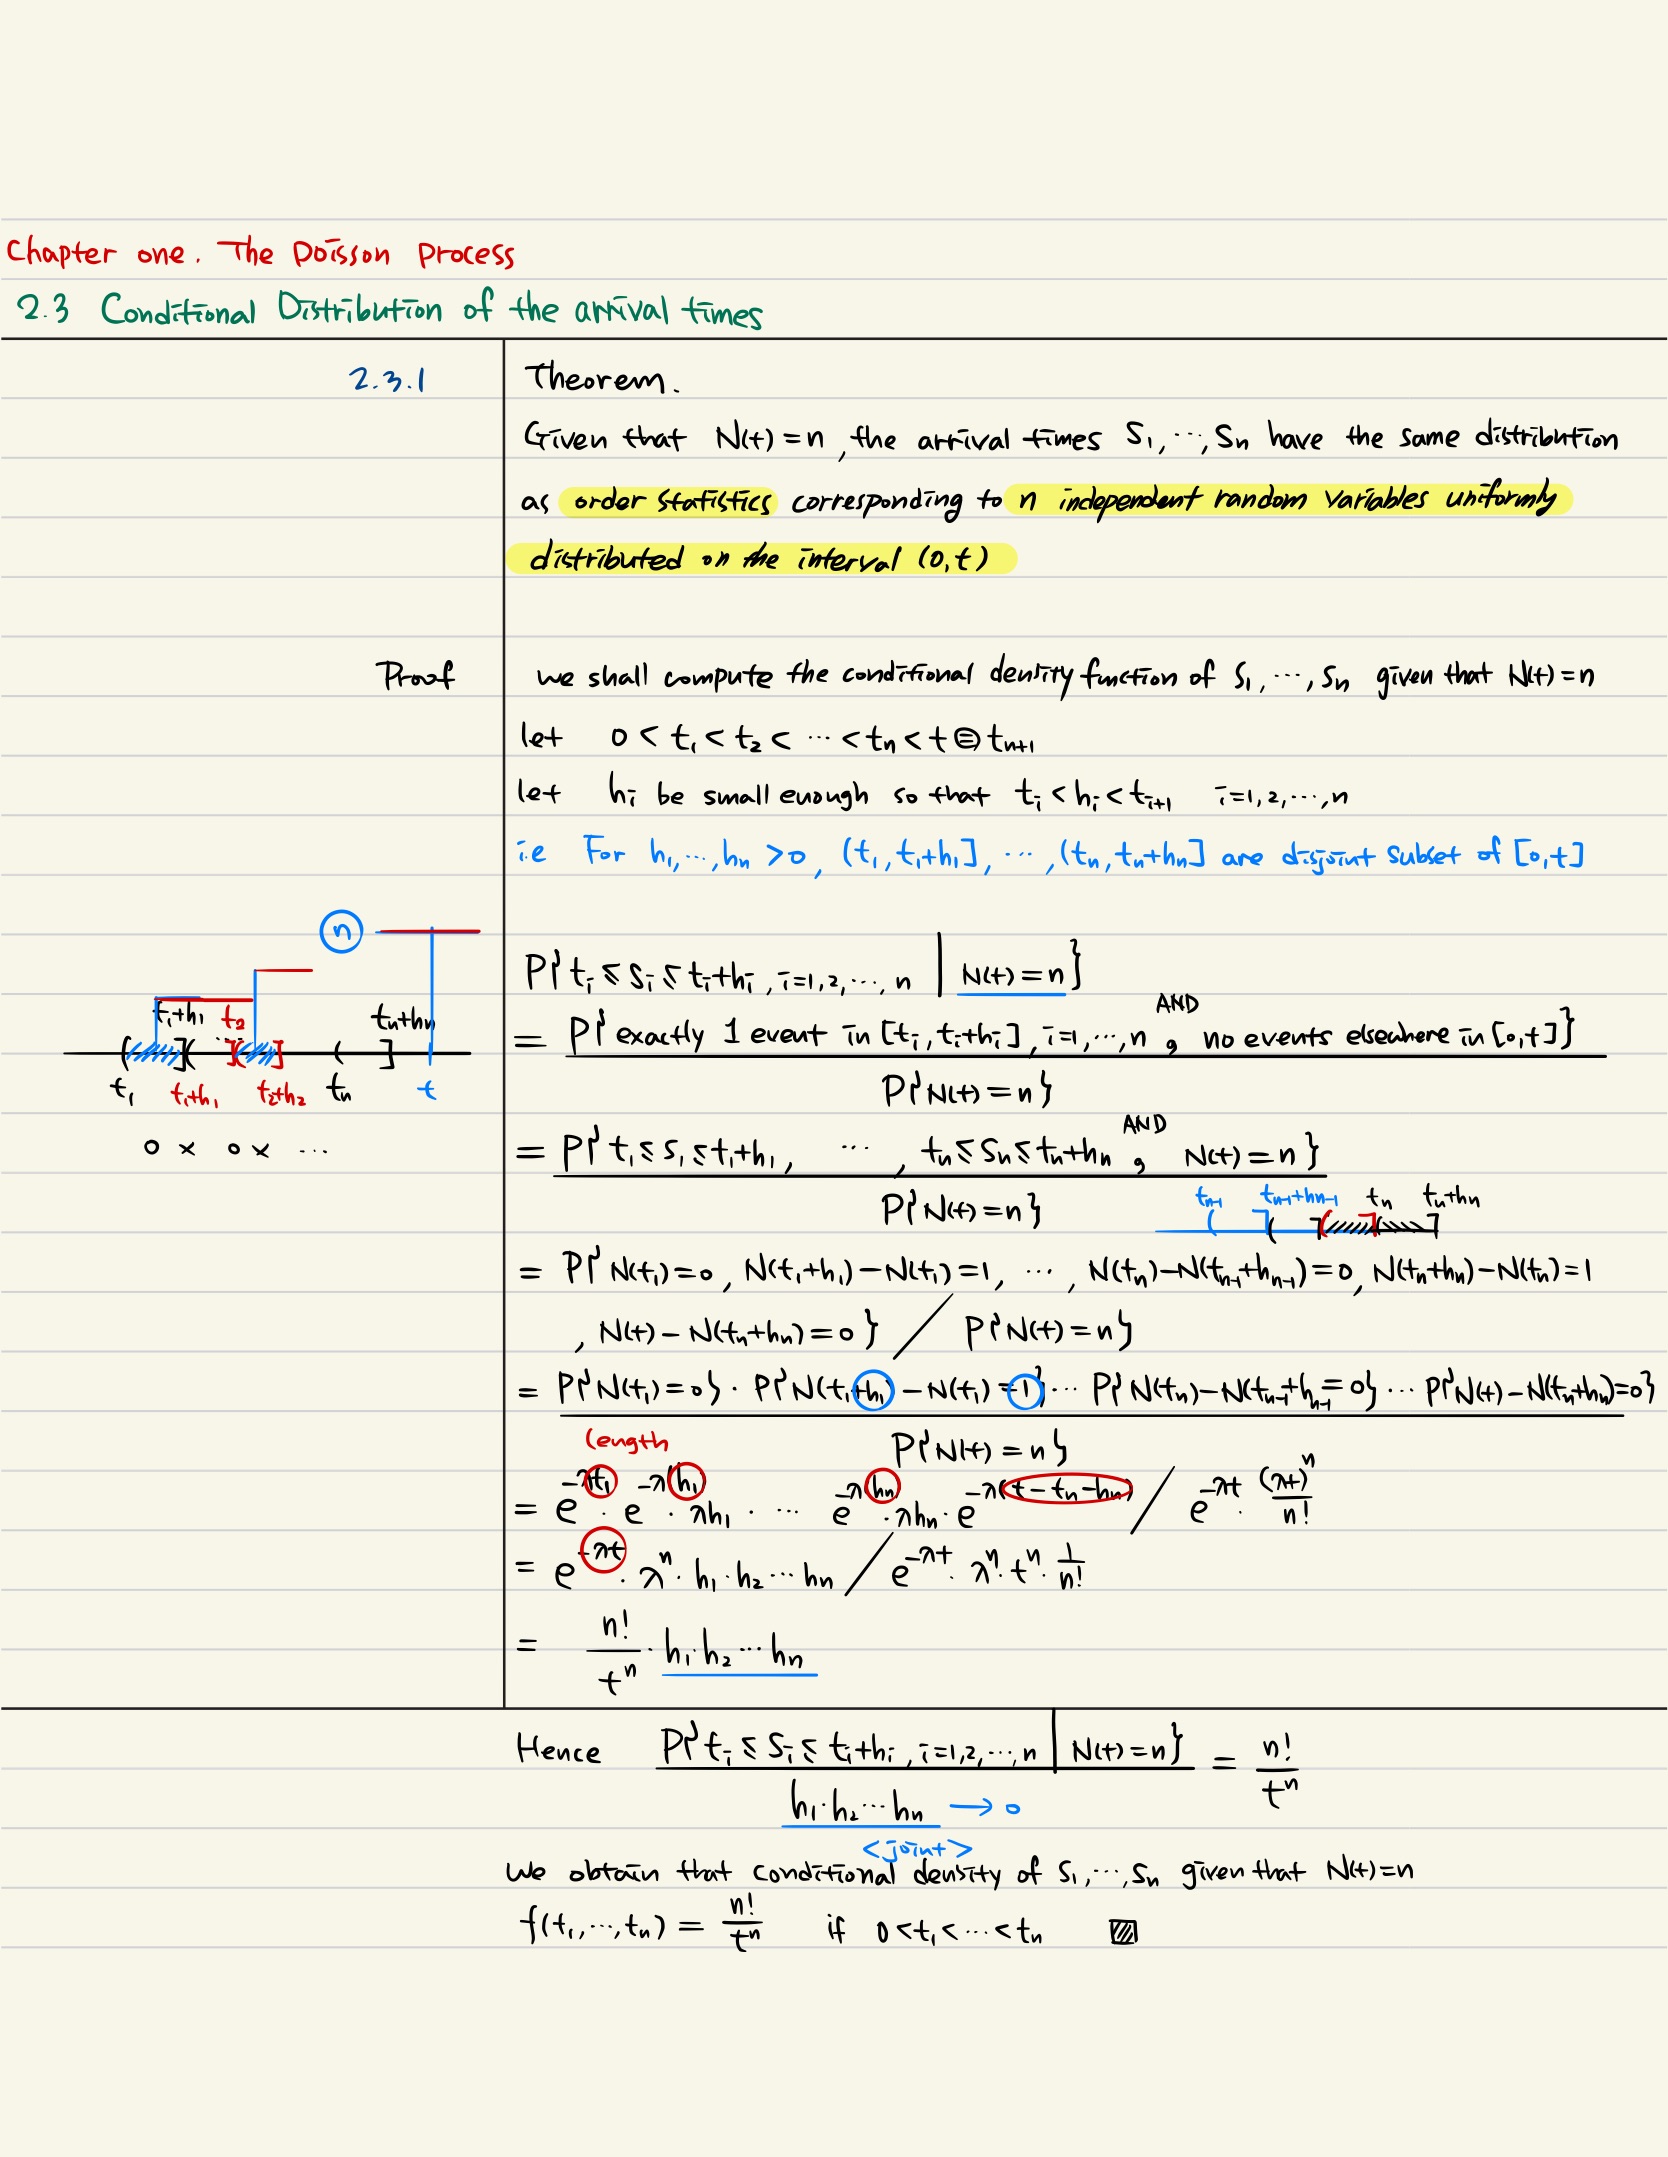 Chapter one. The Poisson Process
2.3 Conditional Distribution of the arrival times
2.3.1
Theorem.
Given that N(t) = n, the arrival times S₁, ⋯, Sₙ have the same distribution
as order statistics corresponding to n independent random variables uniformly
distributed on the interval (0,t)
Proof
we shall compute the conditional density function of S₁, ⋯, Sₙ given that N(t) = n
let 0 < t₁ < t₂ < ⋯ < tₙ < t ⊜ tₙ₊₁
let hᵢ be small enough so that tᵢ < hᵢ < tᵢ₊₁ i=1,2,⋯,n
i.e For h₁,⋯,hₙ >0, (t₁,t₁+h₁], ⋯, (tₙ,tₙ+hₙ] are disjoint subset of [0,t]
n
t₁+h₁ t₂ ⋯ tₙ+hₙ
t₁ t₁+h₁ t₂+h₂ tₙ t
0 × 0 × ⋯
P{tᵢ ≤ Sᵢ ≤ tᵢ+hᵢ, i=1,2,⋯,n | N(t) = n}
AND
= P{exactly 1 event in [tᵢ,tᵢ+hᵢ], i=1,⋯,n, no events elsewhere in [0,t]}
P{N(t) = n}
AND
= P{t₁ ≤ S₁ ≤ t₁+h₁, ⋯, tₙ ≤ Sₙ ≤ tₙ+hₙ, N(t) = n}
P{N(t) = n}
tₙ₋₁ tₙ₋₁+hₙ₋₁ tₙ tₙ+hₙ
= P{N(t₁)=0, N(t₁+h₁)−N(t₁)=1, ⋯, N(tₙ)−N(tₙ₋₁+hₙ₋₁)=0, N(tₙ+hₙ)−N(tₙ)=1
, N(t)−N(tₙ+hₙ)=0} / P{N(t)=n}
= P{N(t₁)=0} · P{N(t₁+h₁)−N(t₁)=1} ⋯ P{N(tₙ)−N(tₙ₋₁+hₙ₋₁=0} ⋯ P{N(t)−N(tₙ+hₙ)=0}
P{N(t) = n}
length
= e^(-λt₁) · e^(-λh₁) · λh₁ ⋯ e^(-λhₙ) · λhₙ · e^(-λ(t−tₙ−hₙ)) / e^(-λt) · (λt)ⁿ/n!
= e^(-λt) · λⁿ · h₁ · h₂ ⋯ hₙ / e^(-λt) · λⁿ · tⁿ · 1/n!
= n!/tⁿ · h₁·h₂ ⋯ hₙ
Hence P{tᵢ ≤ Sᵢ ≤ tᵢ+hᵢ, i=1,2,⋯,n | N(t)=n} = n!/tⁿ
h₁·h₂⋯hₙ → 0
<joint>
we obtain that conditional density of S₁,⋯,Sₙ given that N(t)=n
f(t₁,⋯,tₙ) = n!/tⁿ if 0<t₁<⋯<tₙ ▨